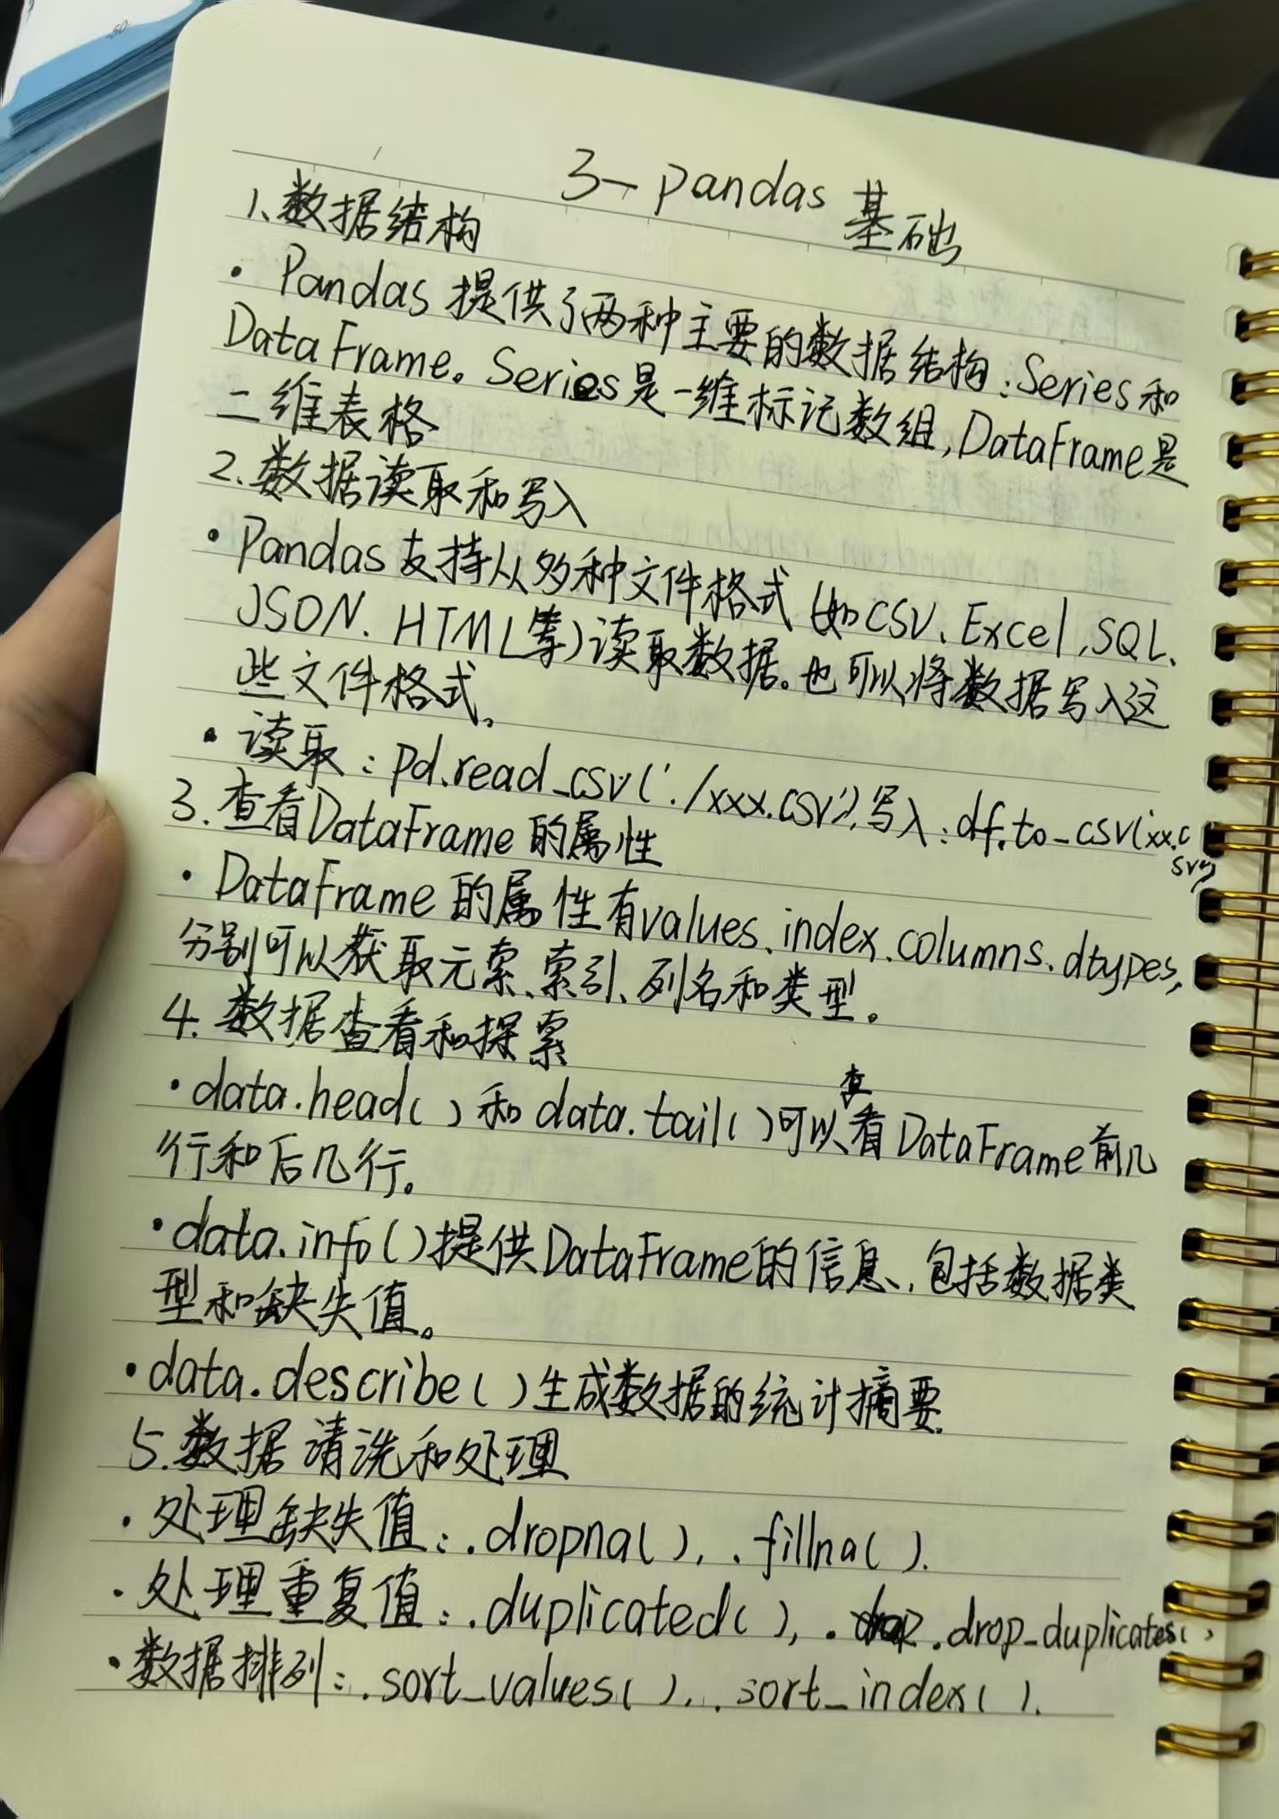 3- pandas 基础
1、数据结构
· Pandas 提供了两种主要的数据结构：Series和
DataFrame。Series是一维标记数组，DataFrame是
二维表格
2.数据读取和写入
· Pandas 支持从多种文件格式(如CSV、Excel、SQL、
JSON、HTML等)读取数据。也可以将数据写入这
些文件格式。
· 读取：pd.read_csv('./xxx.csv'),写入：df.to_csv('xx.c
sv')
3.查看DataFrame的属性
· DataFrame的属性有values、index、columns、dtypes,
分别可以获取元素、索引、列名和类型。
4. 数据查看和探索
· data.head() 和 data.tail()可以查看DataFrame前几
行和后几行。
· data.info()提供DataFrame的信息,包括数据类
型和缺失值。
· data.describe()生成数据的统计摘要.
5.数据清洗和处理
· 处理缺失值：.dropna(), .fillna().
· 处理重复值：.duplicated(), .drop_duplicates()
· 数据排列：.sort_values(), .sort_index().